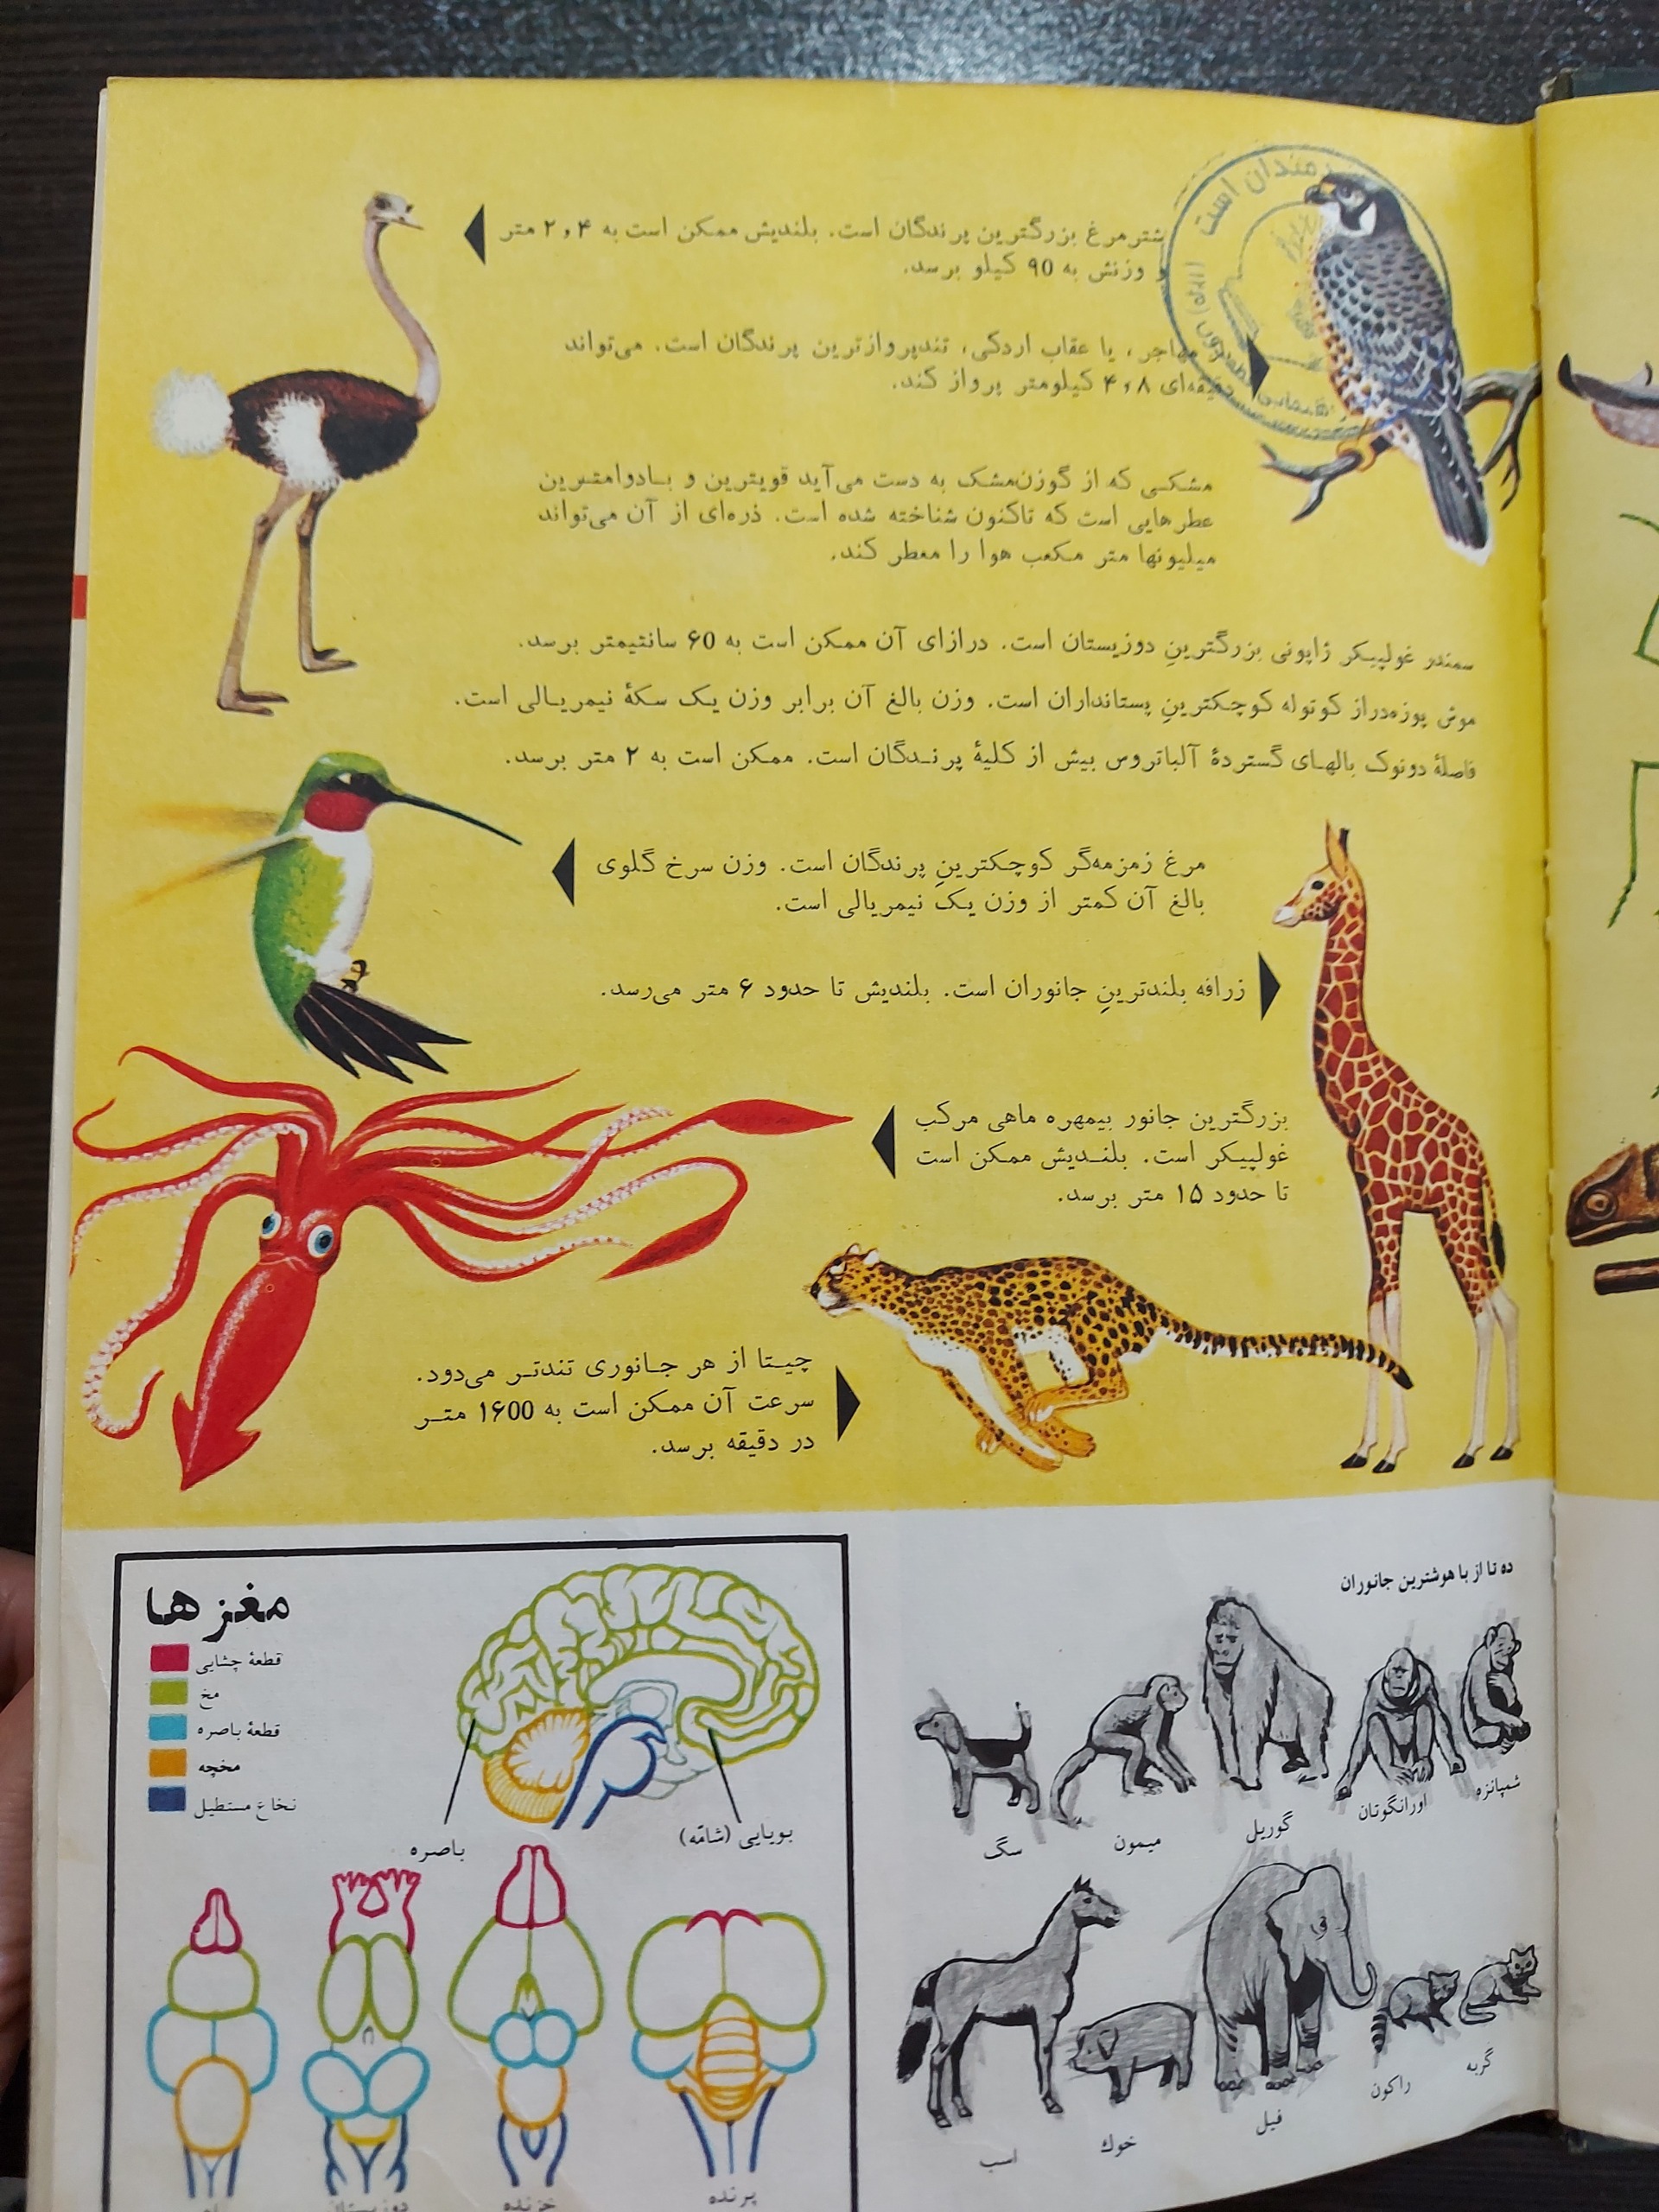 شترمرغ بزرگترین پرندگان است. بلندیش ممکن است به ۲٫۴ متر
و وزنش به ۹۰ کیلو برسد.
مهاجر، یا عقاب اردکی، تندپروازترین پرندگان است. می‌تواند
دقیقه‌ای ۴٫۸ کیلومتر پرواز کند.
مندان است
مشکی که از گوزن‌مشک به دست می‌آید قویترین و بادوامترین
عطرهایی است که تاکنون شناخته شده است. ذره‌ای از آن می‌تواند
میلیونها متر مکعب هوا را معطر کند.
سمندر غولپیکر ژاپونی بزرگترینِ دوزیستان است. درازای آن ممکن است به ۶۰ سانتیمتر برسد.
موش پوزه‌دراز کوتوله کوچکترینِ پستانداران است. وزن بالغ آن برابر وزن یک سکهٔ نیمریالی است.
فاصلهٔ دونوک بالهای گستردهٔ آلباتروس بیش از کلیهٔ پرندگان است. ممکن است به ۲ متر برسد.
مرغ زمزمه‌گر کوچکترینِ پرندگان است. وزن سرخ گلوی
بالغ آن کمتر از وزن یک نیمریالی است.
زرافه بلندترینِ جانوران است. بلندیش تا حدود ۶ متر می‌رسد.
بزرگترین جانور بیمهره ماهی مرکب
غولپیکر است. بلندیش ممکن است
تا حدود ۱۵ متر برسد.
چیتا از هر جانوری تندتر می‌دود.
سرعت آن ممکن است به ۱۶۰۰ متر
در دقیقه برسد.
ده تا از با هوشترین جانوران
شمپانزه
اورانگوتان
گوریل
میمون
سگ
گربه
راکون
فیل
خوک
اسب
مغزها
قطعهٔ چشایی
مخ
قطعهٔ باصره
مخچه
نخاع مستطیل
بویایی (شامّه)
باصره
پرنده
خزنده
دوزیستان